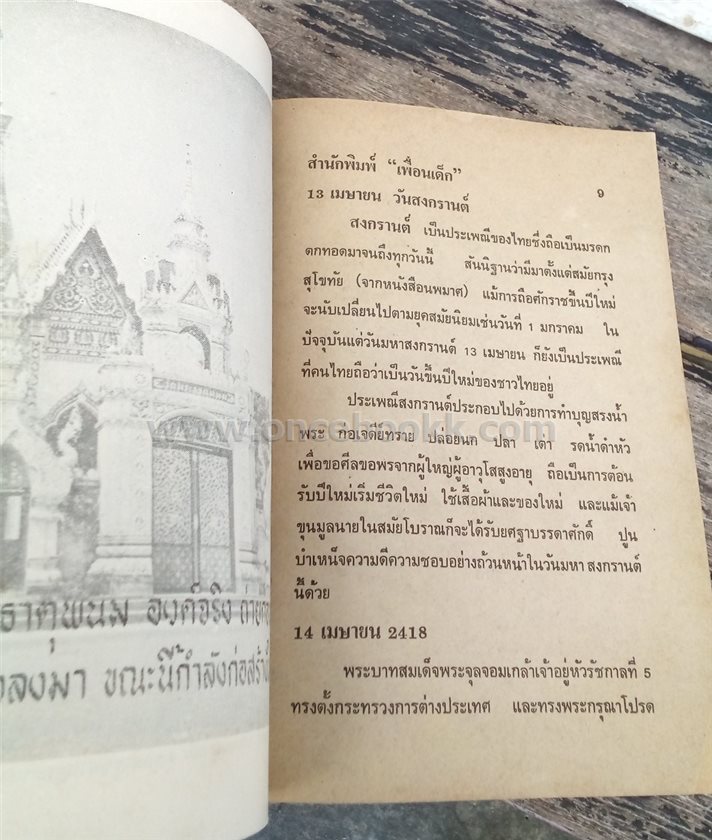 ธาตุพนม องค์จริง ถ่าย
ลงมา ขณะนี้กำลังก่อสร้าง
สำนักพิมพ์ “เพื่อนเด็ก” 9
13 เมษายน วันสงกรานต์
สงกรานต์ เป็นประเพณีของไทยซึ่งถือเป็นมรดก
ตกทอดมาจนถึงทุกวันนี้ สันนิฐานว่ามีมาตั้งแต่สมัยกรุง
สุโขทัย (จากหนังสือนพมาศ) แม้การถือศักราชขึ้นปีใหม่
จะนับเปลี่ยนไปตามยุคสมัยนิยมเช่นวันที่ 1 มกราคม ใน
ปัจจุบันแต่วันมหาสงกรานต์ 13 เมษายน ก็ยังเป็นประเพณี
ที่คนไทยถือว่าเป็นวันขึ้นปีใหม่ของชาวไทยอยู่
ประเพณีสงกรานต์ประกอบไปด้วยการทำบุญสรงน้ำ
พระ กอเจดีย์ทราย ปล่อยนก ปลา เต่า รดน้ำดำหัว
เพื่อขอศีลขอพรจากผู้ใหญ่ผู้อาวุโสสูงอายุ ถือเป็นการต้อน
รับปีใหม่เริ่มชีวิตใหม่ ใช้เสื้อผ้าและของใหม่ และแม้เจ้า
ขุนมูลนายในสมัยโบราณก็จะได้รับยศฐาบรรดาศักดิ์ ปูน
บำเหน็จความดีความชอบอย่างถ้วนหน้าในวันมหา สงกรานต์
นี้ด้วย
14 เมษายน 2418
พระบาทสมเด็จพระจุลจอมเกล้าเจ้าอยู่หัวรัชกาลที่ 5
ทรงตั้งกระทรวงการต่างประเทศ และทรงพระกรุณาโปรด
www.oncebookk.com